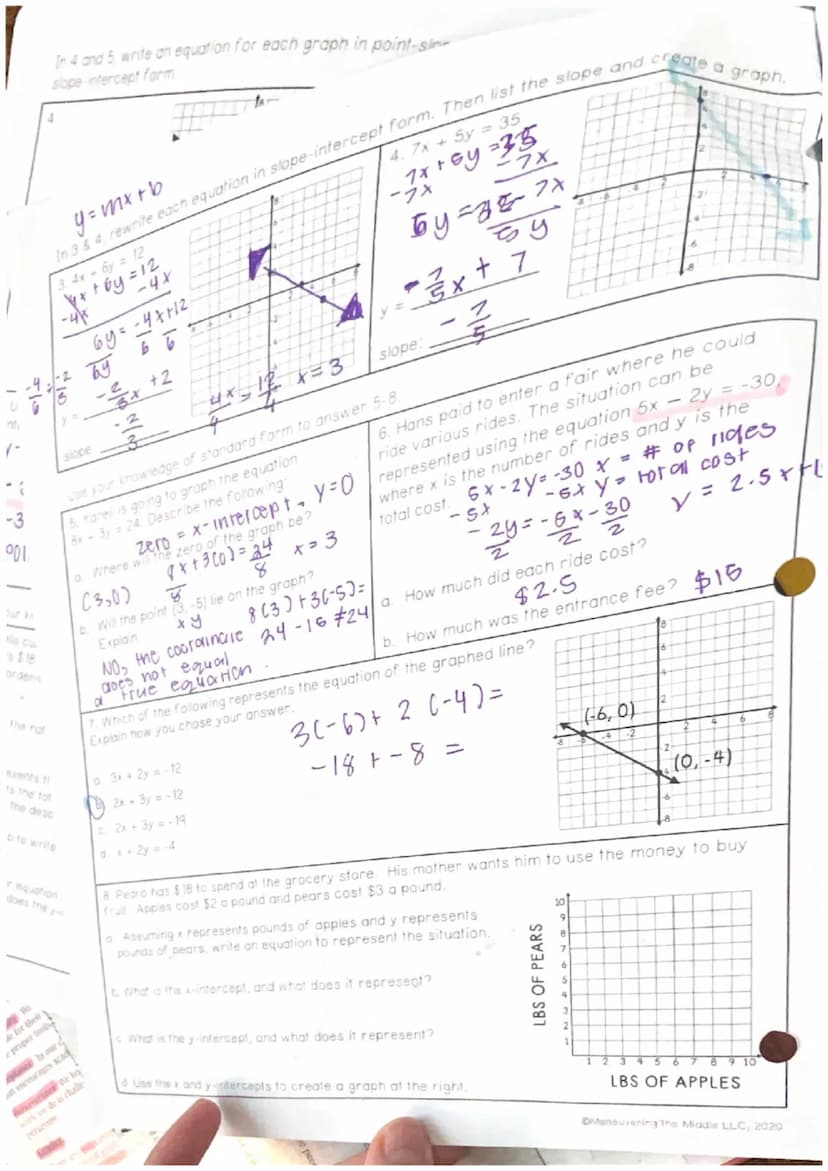 In 4 and 5, write an equation for each graph in point-slope
slope-intercept form.
4
y = mx + b
In 3 & 4, rewrite each equation in slope-intercept form. Then list the slope and create a graph.
3. 4x + 6y = 12
4x + 6y = 12
-4x -4x
6y = -4x + 12
6y 6 6
-4/6 = -2/3
y = -2/3x + 2
slope: -2/3
4x/4 = 12/4 x = 3
4. 7x + 5y = 35
7x + 5y = 35
-7x -7x
5y = 35 - 7x
5y
y = -7/5x + 7
slope: -7/5
Use your knowledge of standard form to answer 5-8.
5. Karen is going to graph the equation
8x + 3y = 24. Describe the following:
zero = x-intercept, y=0
a. Where will the zero of the graph be?
8x + 3(0) = 24 x = 3
8 8
(3,0)
b. Will the point (3, -5) lie on the graph?
Explain.
x y
8(3) + 3(-5) =
24 - 15 ≠ 24
NO, the coordinate
does not equal
a true equation.
6. Hans paid to enter a fair where he could
ride various rides. The situation can be
represented using the equation 5x − 2y = -30,
where x is the number of rides and y is the
total cost.
5x - 2y = -30 x = # of rides
-5x -5x y = total cost
-2y = -5x - 30
2 2 2
y = 2.5x + 1
a. How much did each ride cost?
$2.5
b. How much was the entrance fee? $15
7. Which of the following represents the equation of the graphed line?
Explain how you chose your answer.
3(-6) + 2(-4) =
-18 + -8 =
a. 3x + 2y = -12
b. 2x + 3y = -12
c. 2x + 3y = -19
d. x + 2y = -4
(-6, 0)
(0, -4)
8. Pedro has $18 to spend at the grocery store. His mother wants him to use the money to buy
fruit. Apples cost $2 a pound and pears cost $3 a pound.
a. Assuming x represents pounds of apples and y represents
pounds of pears, write an equation to represent the situation.
b. What is the x-intercept, and what does it represent?
c. What is the y-intercept, and what does it represent?
d. Use the x and y-intercepts to create a graph at the right.
LBS OF PEARS
10
9
8
7
6
5
4
3
2
1
1 2 3 4 5 6 7 8 9 10
LBS OF APPLES
©Maneuvering The Middle LLC, 2020